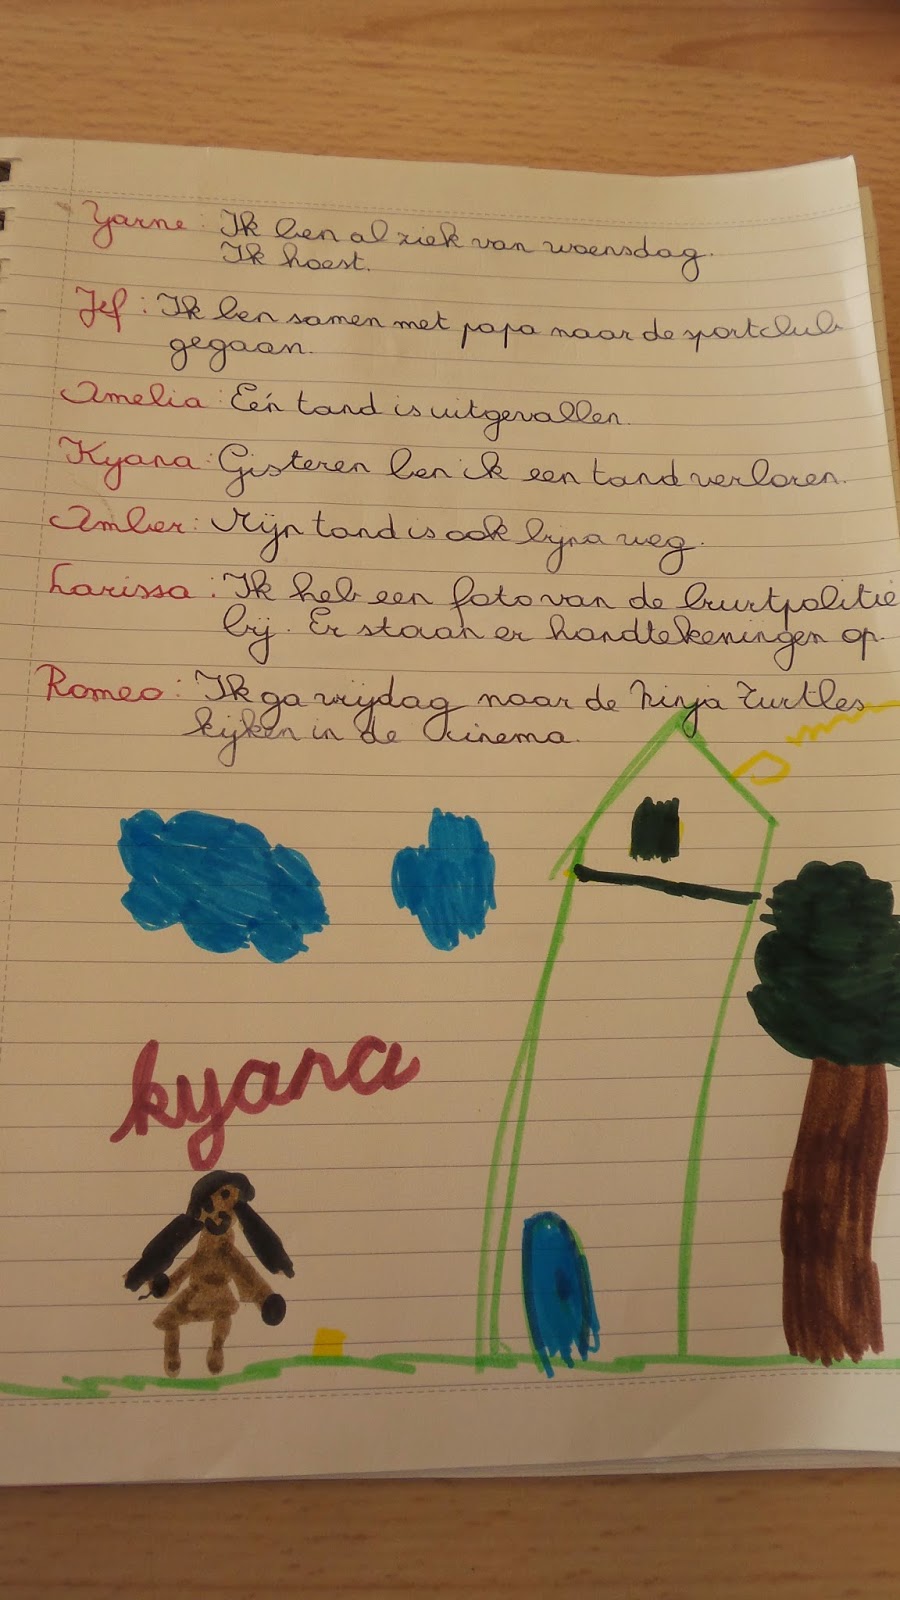 Yarne: Ik ben al ziek van woensdag.
Ik hoest.
Jef: Ik ben samen met papa naar de sportclub
gegaan.
Amelia: Eén tand is uitgevallen.
Kyana: Gisteren ben ik een tand verloren.
Amber: Mijn tand is ook bijna weg.
Larissa: Ik heb een foto van de buurtpolitie
bij. Er staan er handtekeningen op.
Romeo: Ik ga vrijdag naar de Ninja Turtles
kijken in de cinema.
kyana